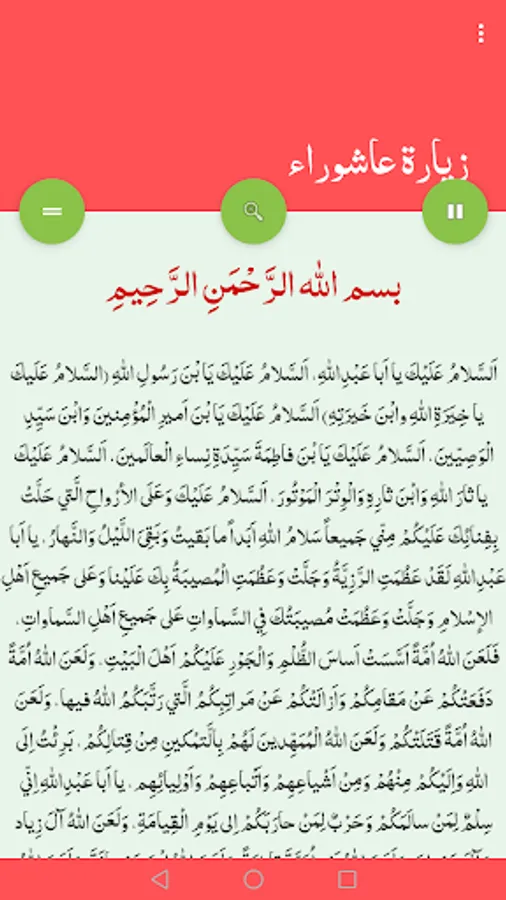 زيارة عاشوراء
بسم الله الرَّحْمَنِ الرَّحِيمِ
اَلسَّلامُ عَلَيْكَ يا اَبا عَبْدِاللهِ، اَلسَّلامُ عَلَيْكَ يَا بْنَ رَسُولِ اللهِ (السَّلامُ عَلَيكَ
يا خِيَرَةِ اللهِ وابْنَ خَيرَتِهِ) اَلسَّلامُ عَلَيْكَ يَا بْنَ اَميرِ الْمُؤْمِنينَ وَابْنَ سَيِّدِ
الْوَصِيّينَ، اَلسَّلامُ عَلَيْكَ يَا بْنَ فاطِمَةَ سَيِّدَةِ نِساءِ الْعالَمينَ، اَلسَّلامُ عَلَيْكَ
يا ثارَ اللهِ وَابْنَ ثارِهِ وَالْوِتْرَ الْمَوْتُورَ، اَلسَّلامُ عَلَيْكَ وَعَلَى الأرواحِ الَّتي حَلَّتْ
بِفِنائِكَ عَلَيْكُمْ مِنّي جَميعاً سَلامُ اللهِ اَبَداً ما بَقيتُ وَبَقِيَ اللَّيْلُ وَالنَّهارُ، يا اَبا
عَبْدِاللهِ لَقَدْ عَظُمَتِ الرَّزِيَّةُ وَجَلَّتْ وَعَظُمَتِ الْمُصيبَةُ بِكَ عَلَيْنا وَعَلى جَميعِ اَهْلِ
الإسْلامِ وَجَلَّتْ وَعَظُمَتْ مُصيبَتُكَ فِي السَّماواتِ عَلى جَميعِ اَهْلِ السَّماواتِ،
فَلَعَنَ اللهُ اُمَّةً اَسَّسَتْ اَساسَ الظُّلْمِ وَالْجَوْرِ عَلَيْكُمْ اَهْلَ الْبَيْتِ، وَلَعَنَ اللهُ اُمَّةً
دَفَعَتْكُمْ عَنْ مَقامِكُمْ وَاَزالَتْكُمْ عَنْ مَراتِبِكُمُ الَّتي رَتَّبَكُمُ اللهُ فيها، وَلَعَنَ
اللهُ اُمَّةً قَتَلَتْكُمْ وَلَعَنَ اللهُ الْمُمَهِّدينَ لَهُمْ بِالتَّمْكينِ مِنْ قِتالِكُمْ، بَرِئْتُ اِلَى
اللهِ وَاِلَيْكُمْ مِنْهُمْ وَمِنْ اَشْياعِهِمْ وَاَتْباعِهِمْ وَاَوْلِيائِهِم، يا اَبا عَبْدِاللهِ اِنّي
سِلْمٌ لِمَنْ سالَمَكُمْ وَحَرْبٌ لِمَنْ حارَبَكُمْ اِلى يَوْمِ الْقِيامَةِ، وَلَعَنَ اللهُ آلَ زِياد